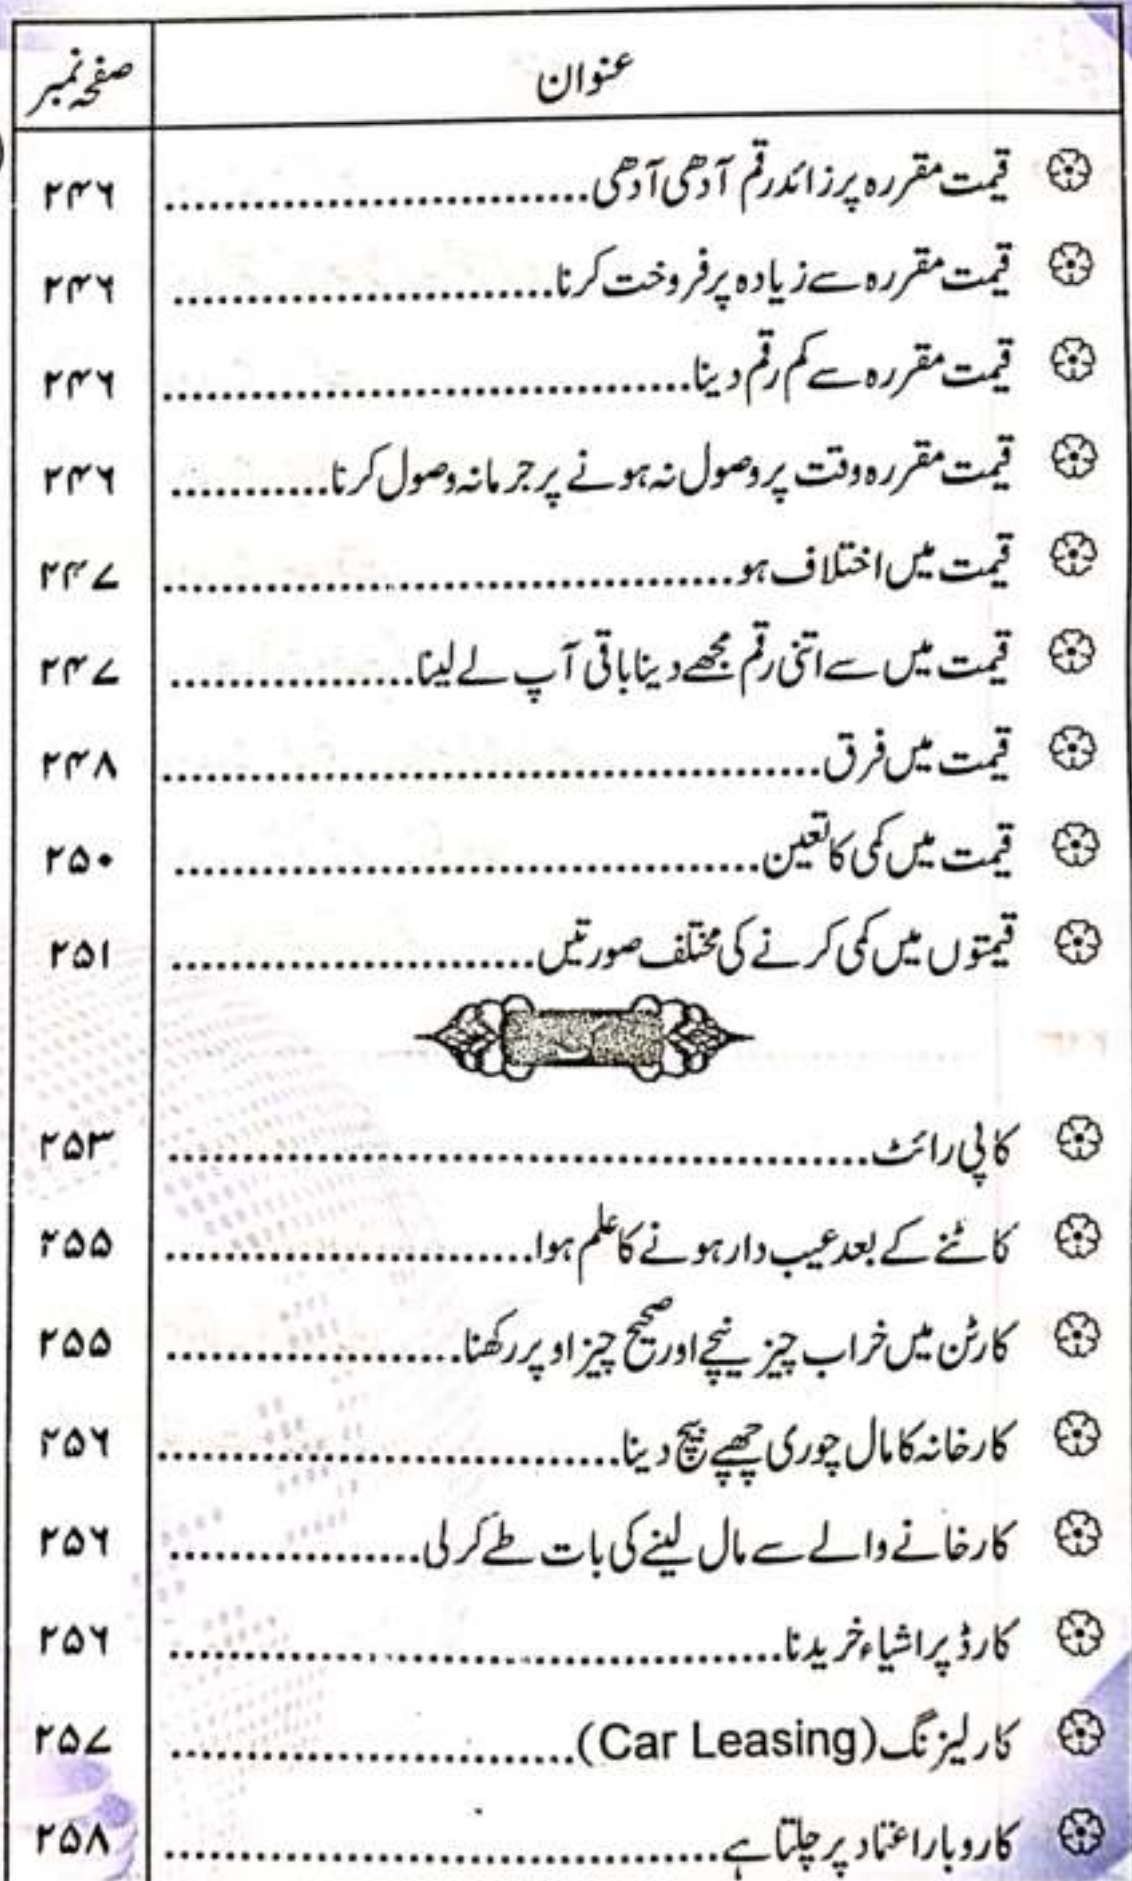 عنوان صفحہ نمبر
قیمت مقررہ پر زائد رقم آدھی آدھی ۲۴۶
قیمت مقررہ سے زیادہ پر فروخت کرنا ۲۴۶
قیمت مقررہ سے کم رقم دینا ۲۴۶
قیمت مقررہ وقت پر وصول نہ ہونے پر جرمانہ وصول کرنا ۲۴۶
قیمت میں اختلاف ہو ۲۴۷
قیمت میں سے اتنی رقم مجھے دینا باقی آپ لے لینا ۲۴۷
قیمت میں فرق ۲۴۸
قیمت میں کمی کا تعین ۲۵۰
قیمتوں میں کمی کرنے کی مختلف صورتیں ۲۵۱
ک
کاپی رائٹ ۲۵۳
کاٹنے کے بعد عیب دار ہونے کا علم ہوا ۲۵۵
کارٹن میں خراب چیز نیچے اور صحیح چیز اوپر رکھنا ۲۵۵
کارخانہ کا مال چوری چھپے بیچ دینا ۲۵۶
کارخانے والے سے مال لینے کی بات طے کر لی ۲۵۶
کارڈ پر اشیاء خریدنا ۲۵۶
کار لیزنگ (Car Leasing) ۲۵۷
کاروبار اعتماد پر چلتا ہے ۲۵۸